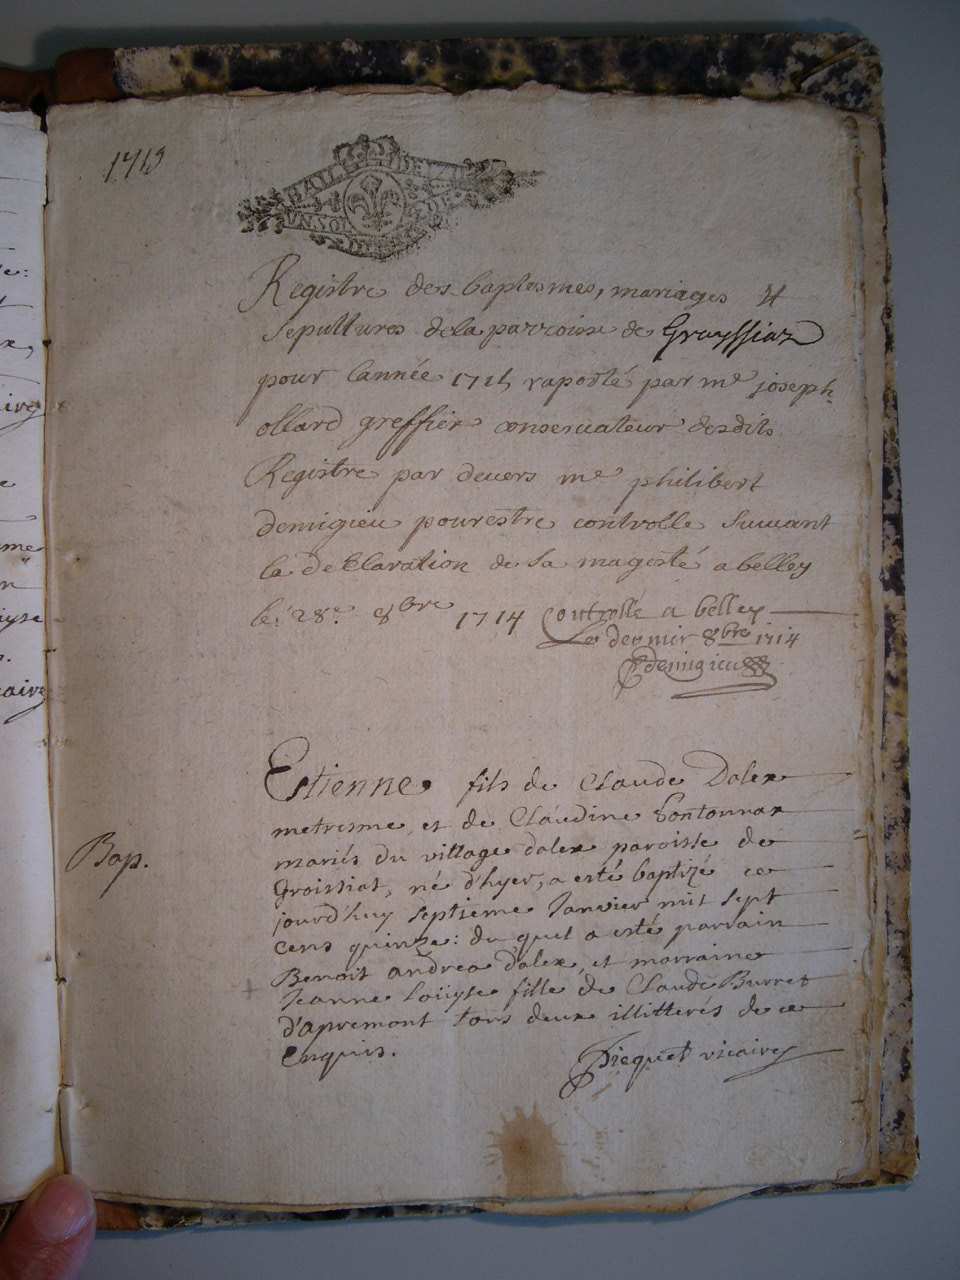 1715
BAIL DE
UN SOL
Registre des baptesmes, mariages et
sepultures de la parroisse de Groyssiaz
pour lannée 1715 raporté par me joseph
ollard greffier conservateur desdits
Registre par devers me philibert
demigieu pour estre controlle suivant
la deklaration de sa magesté a belley
le 28e 8bre 1714 Controllé a belley
Le dernier 8bre 1714
demigieu
Bap.
Estienne fils de Claude Dalex
metresme, et de Claudine Fontonnax
mariés du village dalex paroisse de
Groissiat, né d'hyer, a esté baptizé ce
jourd'huy septieme Janvier mil sept
cens quinze: du quel a esté parrain
Benoit andrea Dalex, et marraine
Jeanne Loüyse fille de Claude Burret
d'apremont tous deux illitterés de ce
Enquis.
Piequet vicaire